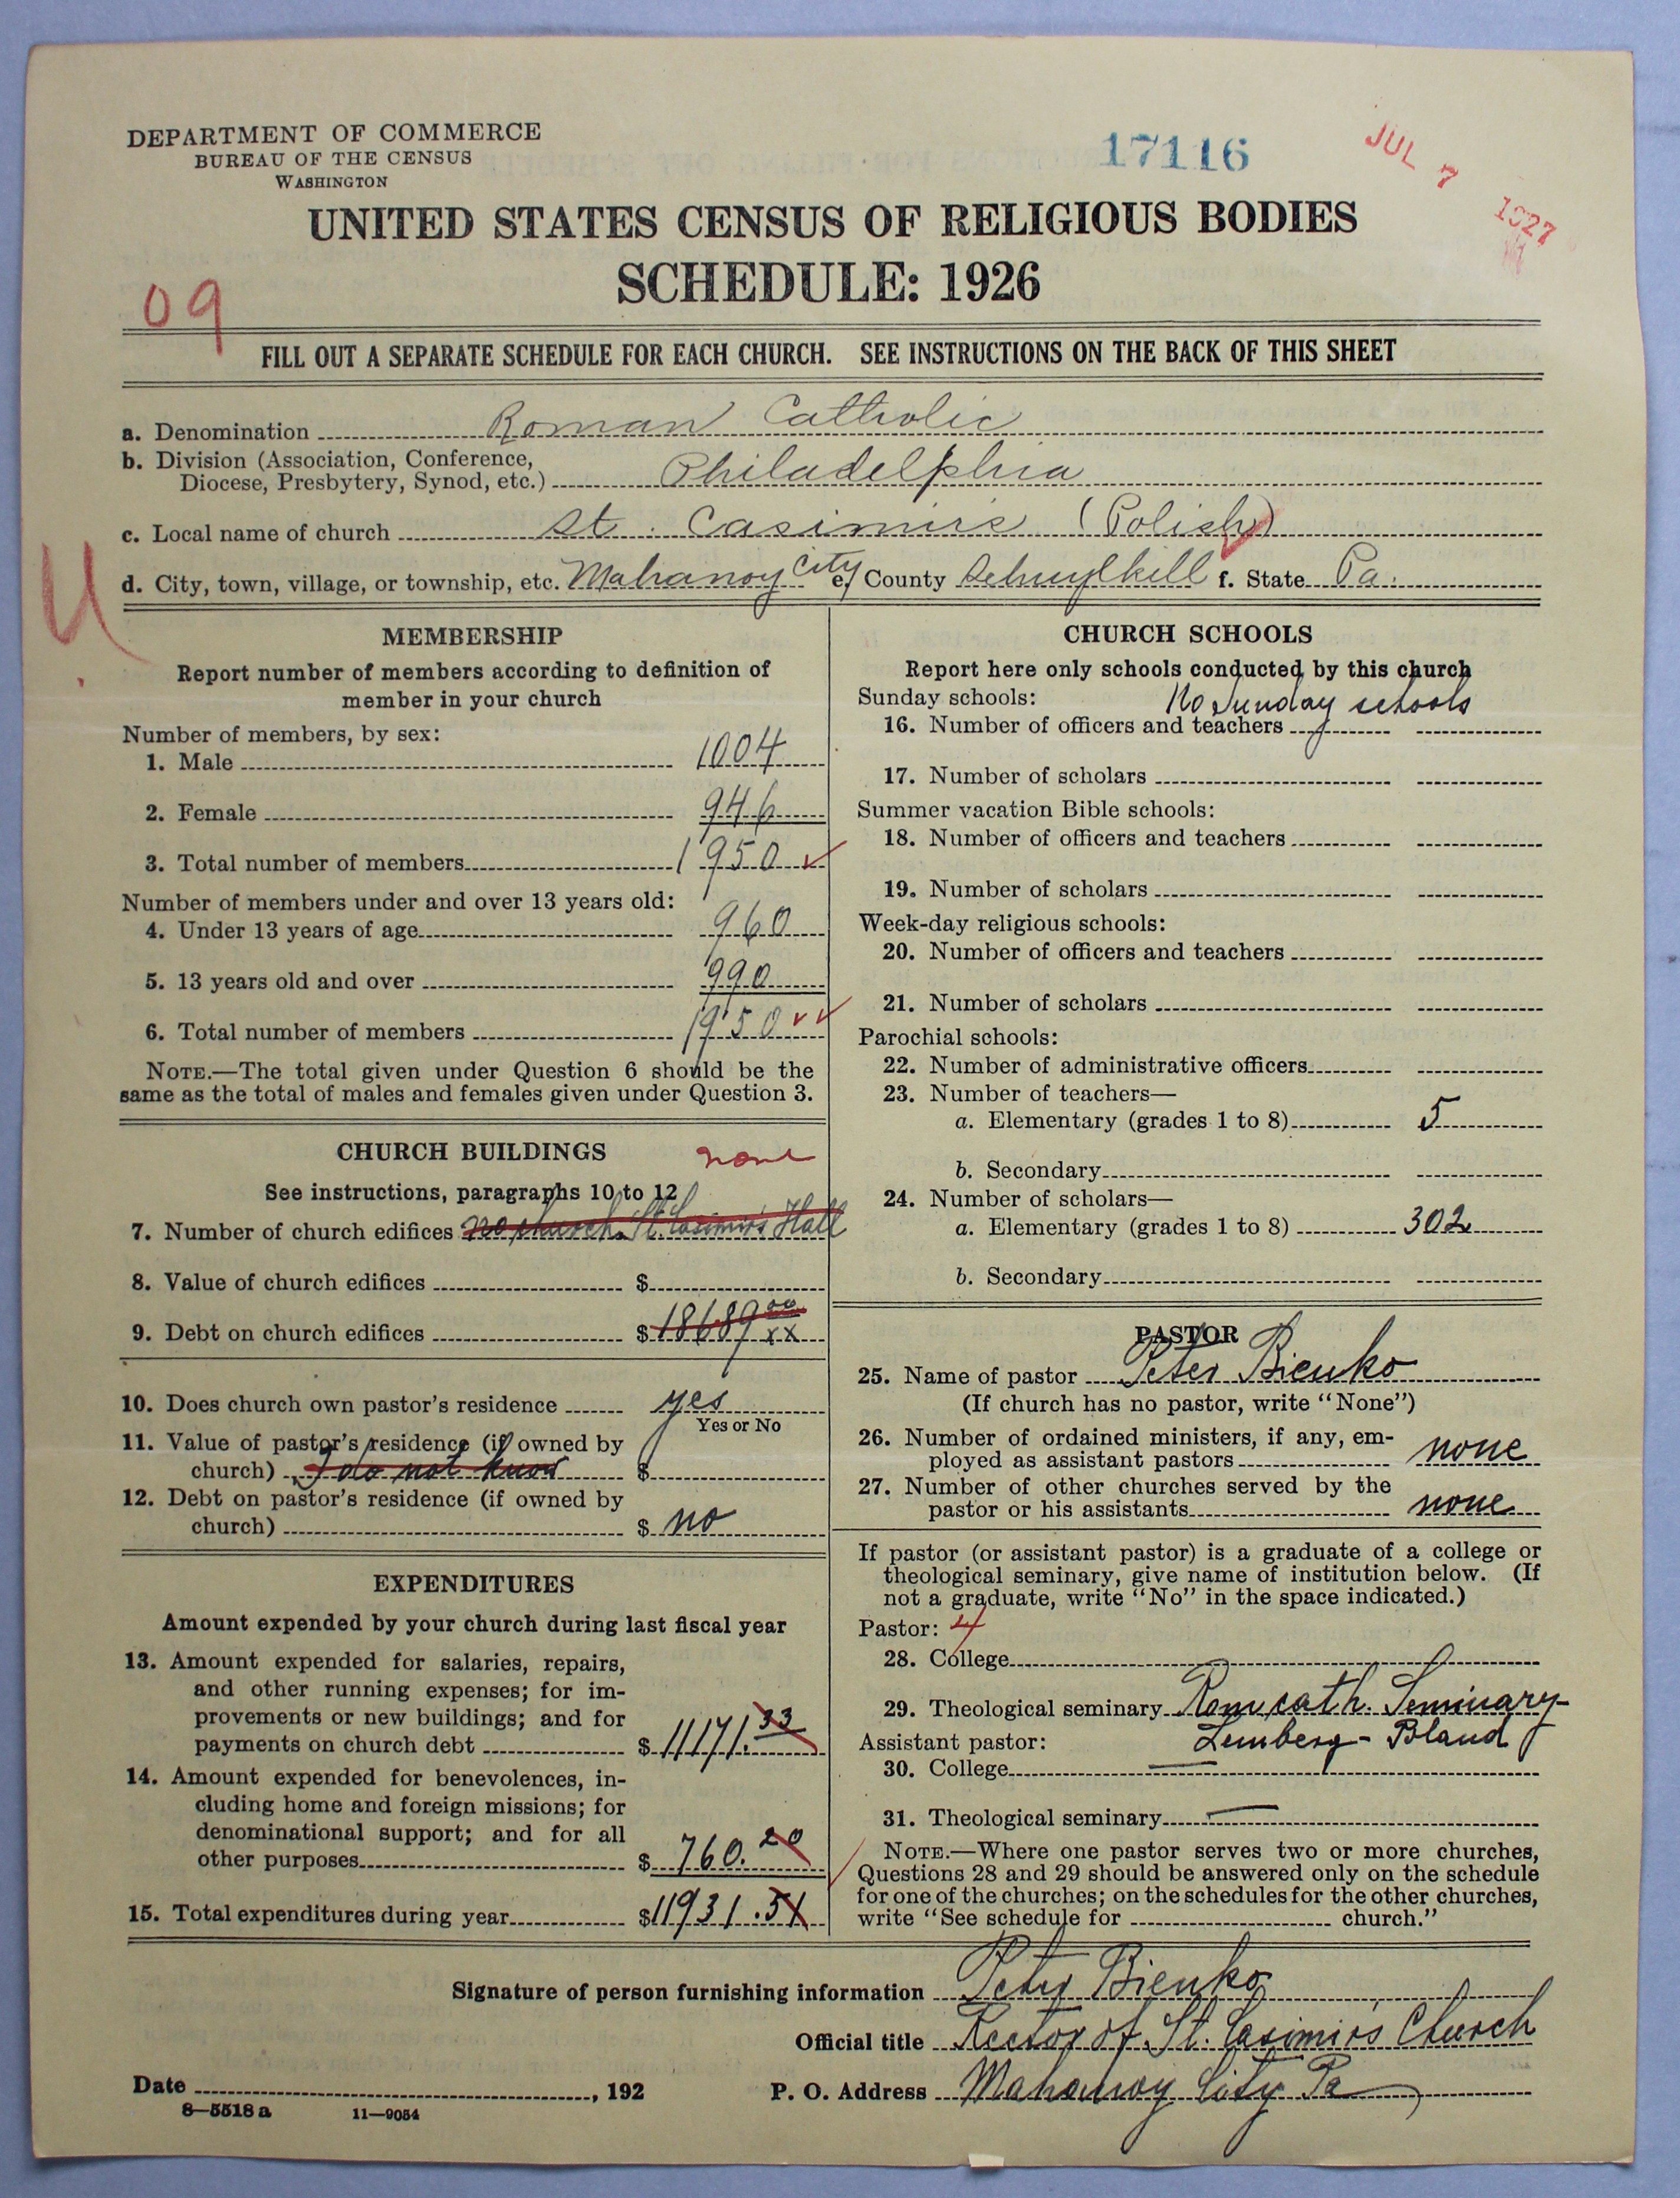 DEPARTMENT OF COMMERCE
BUREAU OF THE CENSUS
WASHINGTON
17116
JUL 7 1927
UNITED STATES CENSUS OF RELIGIOUS BODIES
SCHEDULE: 1926
09
FILL OUT A SEPARATE SCHEDULE FOR EACH CHURCH. SEE INSTRUCTIONS ON THE BACK OF THIS SHEET
a. Denomination Roman Catholic
b. Division (Association, Conference,
Diocese, Presbytery, Synod, etc.) Philadelphia
c. Local name of church St. Casimirs (Polish)
d. City, town, village, or township, etc. Mahanoy City e. County Schuylkill f. State Pa.
U
MEMBERSHIP
Report number of members according to definition of
member in your church
Number of members, by sex:
1. Male 1004
2. Female 946
3. Total number of members 1950
Number of members under and over 13 years old:
4. Under 13 years of age 960
5. 13 years old and over 990
6. Total number of members 1950
NOTE.—The total given under Question 6 should be the
same as the total of males and females given under Question 3.
CHURCH BUILDINGS none
See instructions, paragraphs 10 to 12
7. Number of church edifices no church. St. Casimir's Hall
8. Value of church edifices $
9. Debt on church edifices $ 18689 00 xx
10. Does church own pastor's residence yes
Yes or No
11. Value of pastor's residence (if owned by
church) I do not know $
12. Debt on pastor's residence (if owned by
church) $ no
EXPENDITURES
Amount expended by your church during last fiscal year
13. Amount expended for salaries, repairs,
and other running expenses; for im-
provements or new buildings; and for
payments on church debt $ 11171.33
14. Amount expended for benevolences, in-
cluding home and foreign missions; for
denominational support; and for all
other purposes $ 760.20
15. Total expenditures during year $11931.51
CHURCH SCHOOLS
Report here only schools conducted by this church
Sunday schools: No Sunday schools
16. Number of officers and teachers
17. Number of scholars
Summer vacation Bible schools:
18. Number of officers and teachers
19. Number of scholars
Week-day religious schools:
20. Number of officers and teachers
21. Number of scholars
Parochial schools:
22. Number of administrative officers
23. Number of teachers—
a. Elementary (grades 1 to 8) 5
b. Secondary
24. Number of scholars—
a. Elementary (grades 1 to 8) 302
b. Secondary
PASTOR
25. Name of pastor Peter Bienko
(If church has no pastor, write "None")
26. Number of ordained ministers, if any, em-
ployed as assistant pastors none
27. Number of other churches served by the
pastor or his assistants none
If pastor (or assistant pastor) is a graduate of a college or
theological seminary, give name of institution below. (If
not a graduate, write "No" in the space indicated.)
Pastor: 4
28. College
29. Theological seminary Rom cath. Seminary
Lemberg - Poland
Assistant pastor:
30. College —
31. Theological seminary —
NOTE.—Where one pastor serves two or more churches,
Questions 28 and 29 should be answered only on the schedule
for one of the churches; on the schedules for the other churches,
write "See schedule for church."
Signature of person furnishing information Peter Bienko
Official title Rector of St. Casimir's Church
Date , 192 P. O. Address Mahanoy City Pa
8—5518 a 11—9054